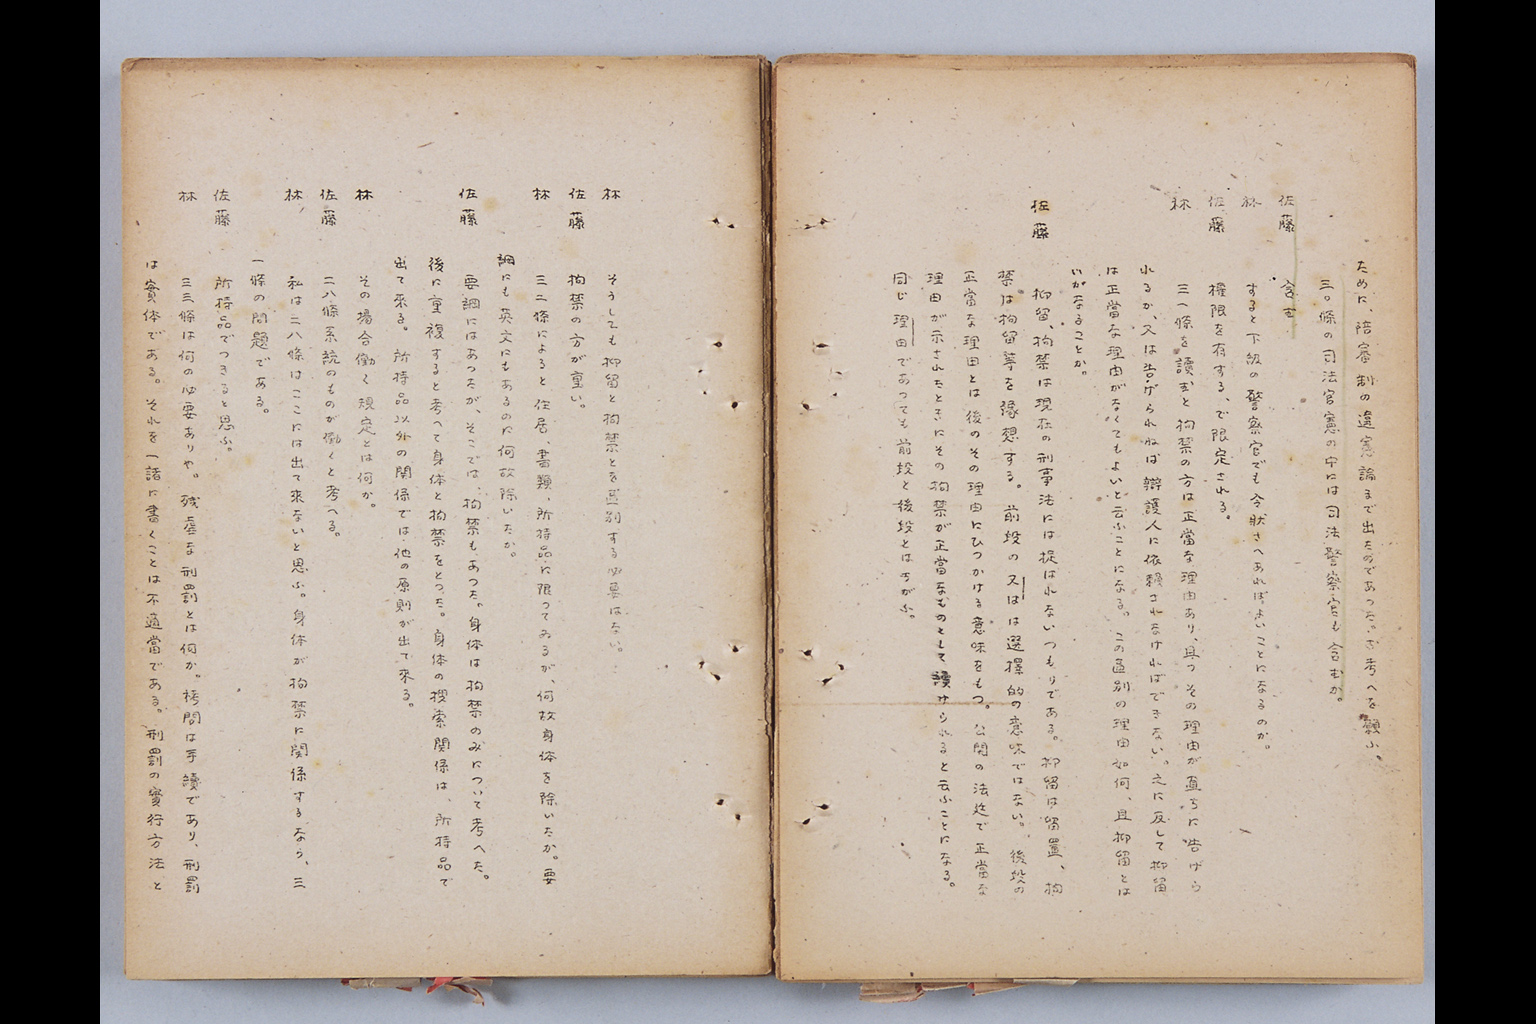 ために、陪審制の違憲論まで出たのであつた。お考へを願ふ、
三〇條の司法官憲の中には司法警察官も含むか。
佐藤　含む
林　すると下級の警察官でも令狀さへあればよいことになるのか。
佐藤　權限を有する、で限定される。
林　三一條を讀むと拘禁の方は正當な理由あり、且つその理由が直ちに告げら
れるか、又は告げられねば辯護人に依賴されなければできない。之に反して抑留
は正當な理由がなくてもよいと云ふことになる。この區別の理由如何、且抑留とは
いかなることか。
佐藤　抑留、拘禁は現在の刑事法には捉はれないつもりである。抑留は留置、拘
禁は拘留等を豫想する。前段の又はは選擇的の意味ではない。後段の
正當な理由とは後のその理由にひつかける意味をもつ。公開の法廷で正當な
理由が示されたときにその拘禁が正當なものとして讀けられると云ふことになる。
同じ理由であつても前段と後段とはちがふ。
林　そうしても抑留と拘禁とを區別する必要はない。
佐藤　拘禁の方が重い。
林　三二條によると住居、書類、所持品に限つてゐるが、何故身体を除いたか。要
綱にも英文にもあるのに何故除いたか。
佐藤　要綱にはあつたが、そこでは、拘禁もあつた。身体は拘禁のみについて考へた。
後に重複すると考へて身体と拘禁をとつた。身体の搜索関係は、所持品で
出て來る。所持品以外の関係では他の原則が出て來る。
林　その場合働く規定とは何か。
佐藤　二八條系統のものが働くと考へる。
林　私は二八條はここには出て來ないと思ふ。身体が拘禁に関係するなら、三
一條の問題である。
佐藤　所持品でつきると思ふ。
林　三三條は何の必要ありや。残虐な刑罰とは何か。拷問は手續であり、刑罰
は實体である。それを一諸に書くことは不適當である。刑罰の實行方法と